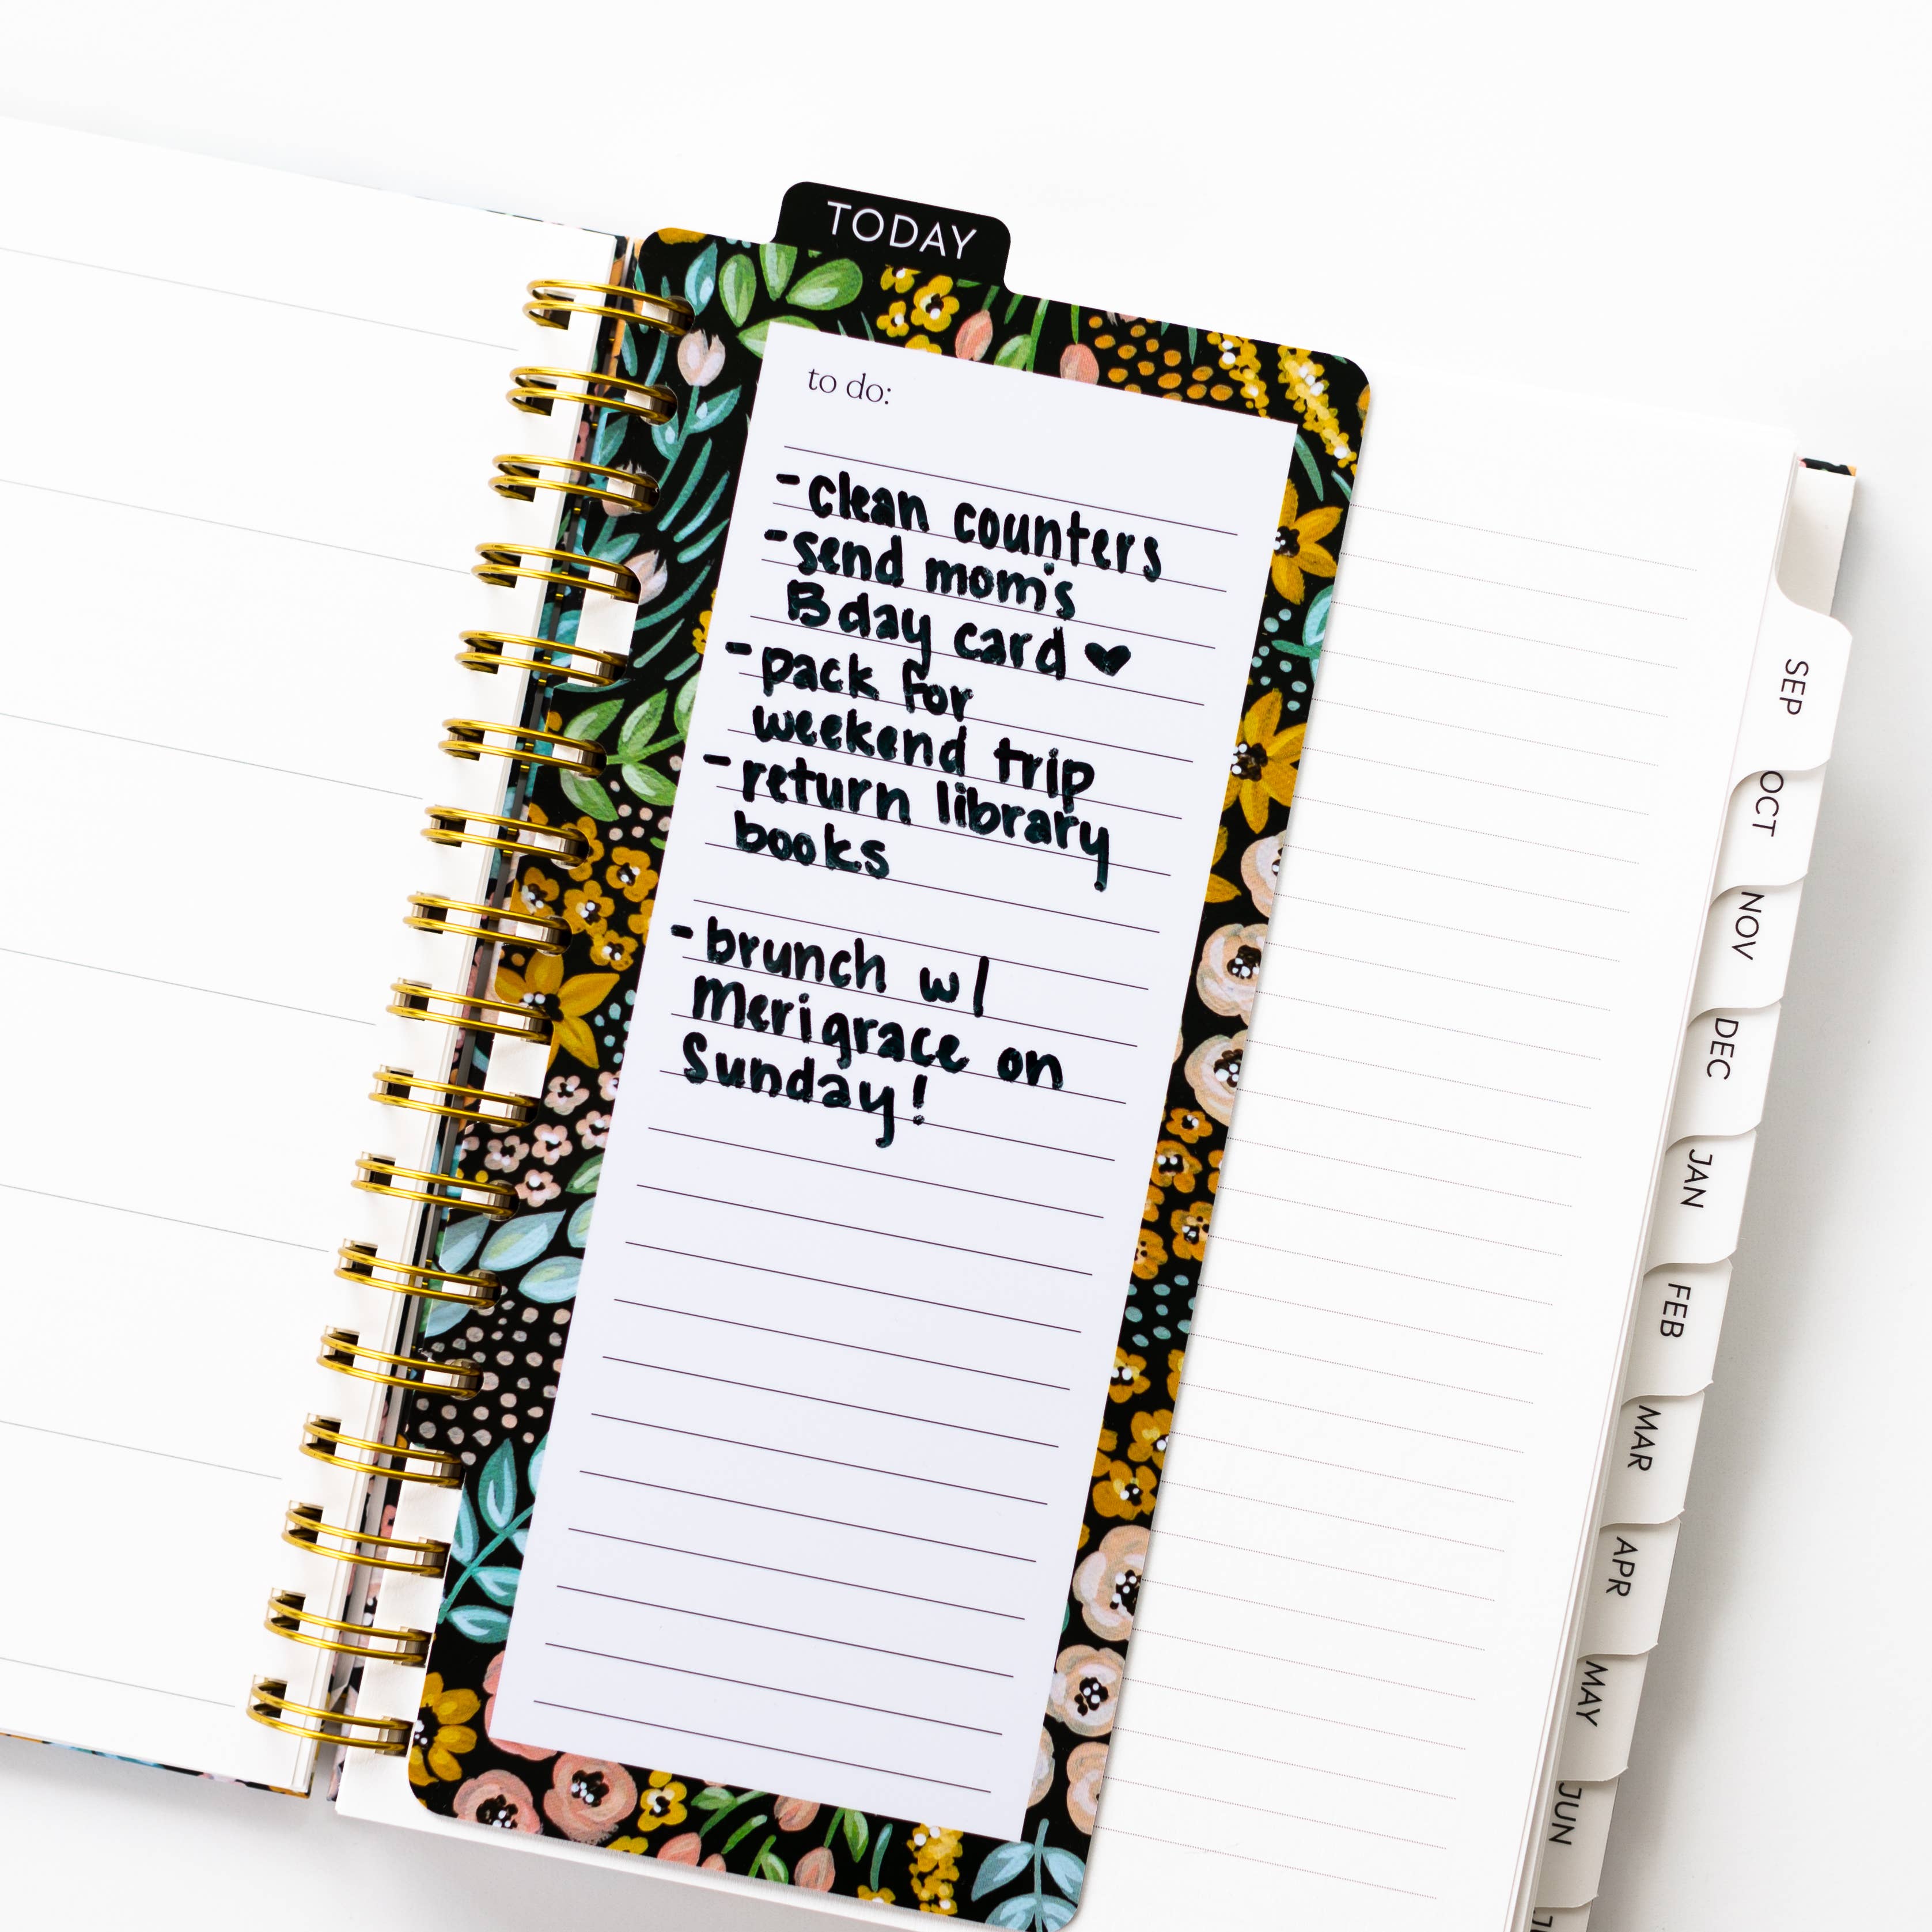 TODAY
to do:
- clean counters
- send mom's
Bday card ♥
- pack for
weekend trip
- return library
books
- brunch w/
Merigrace on
Sunday!
SEP
OCT
NOV
DEC
JAN
FEB
MAR
APR
MAY
JUN